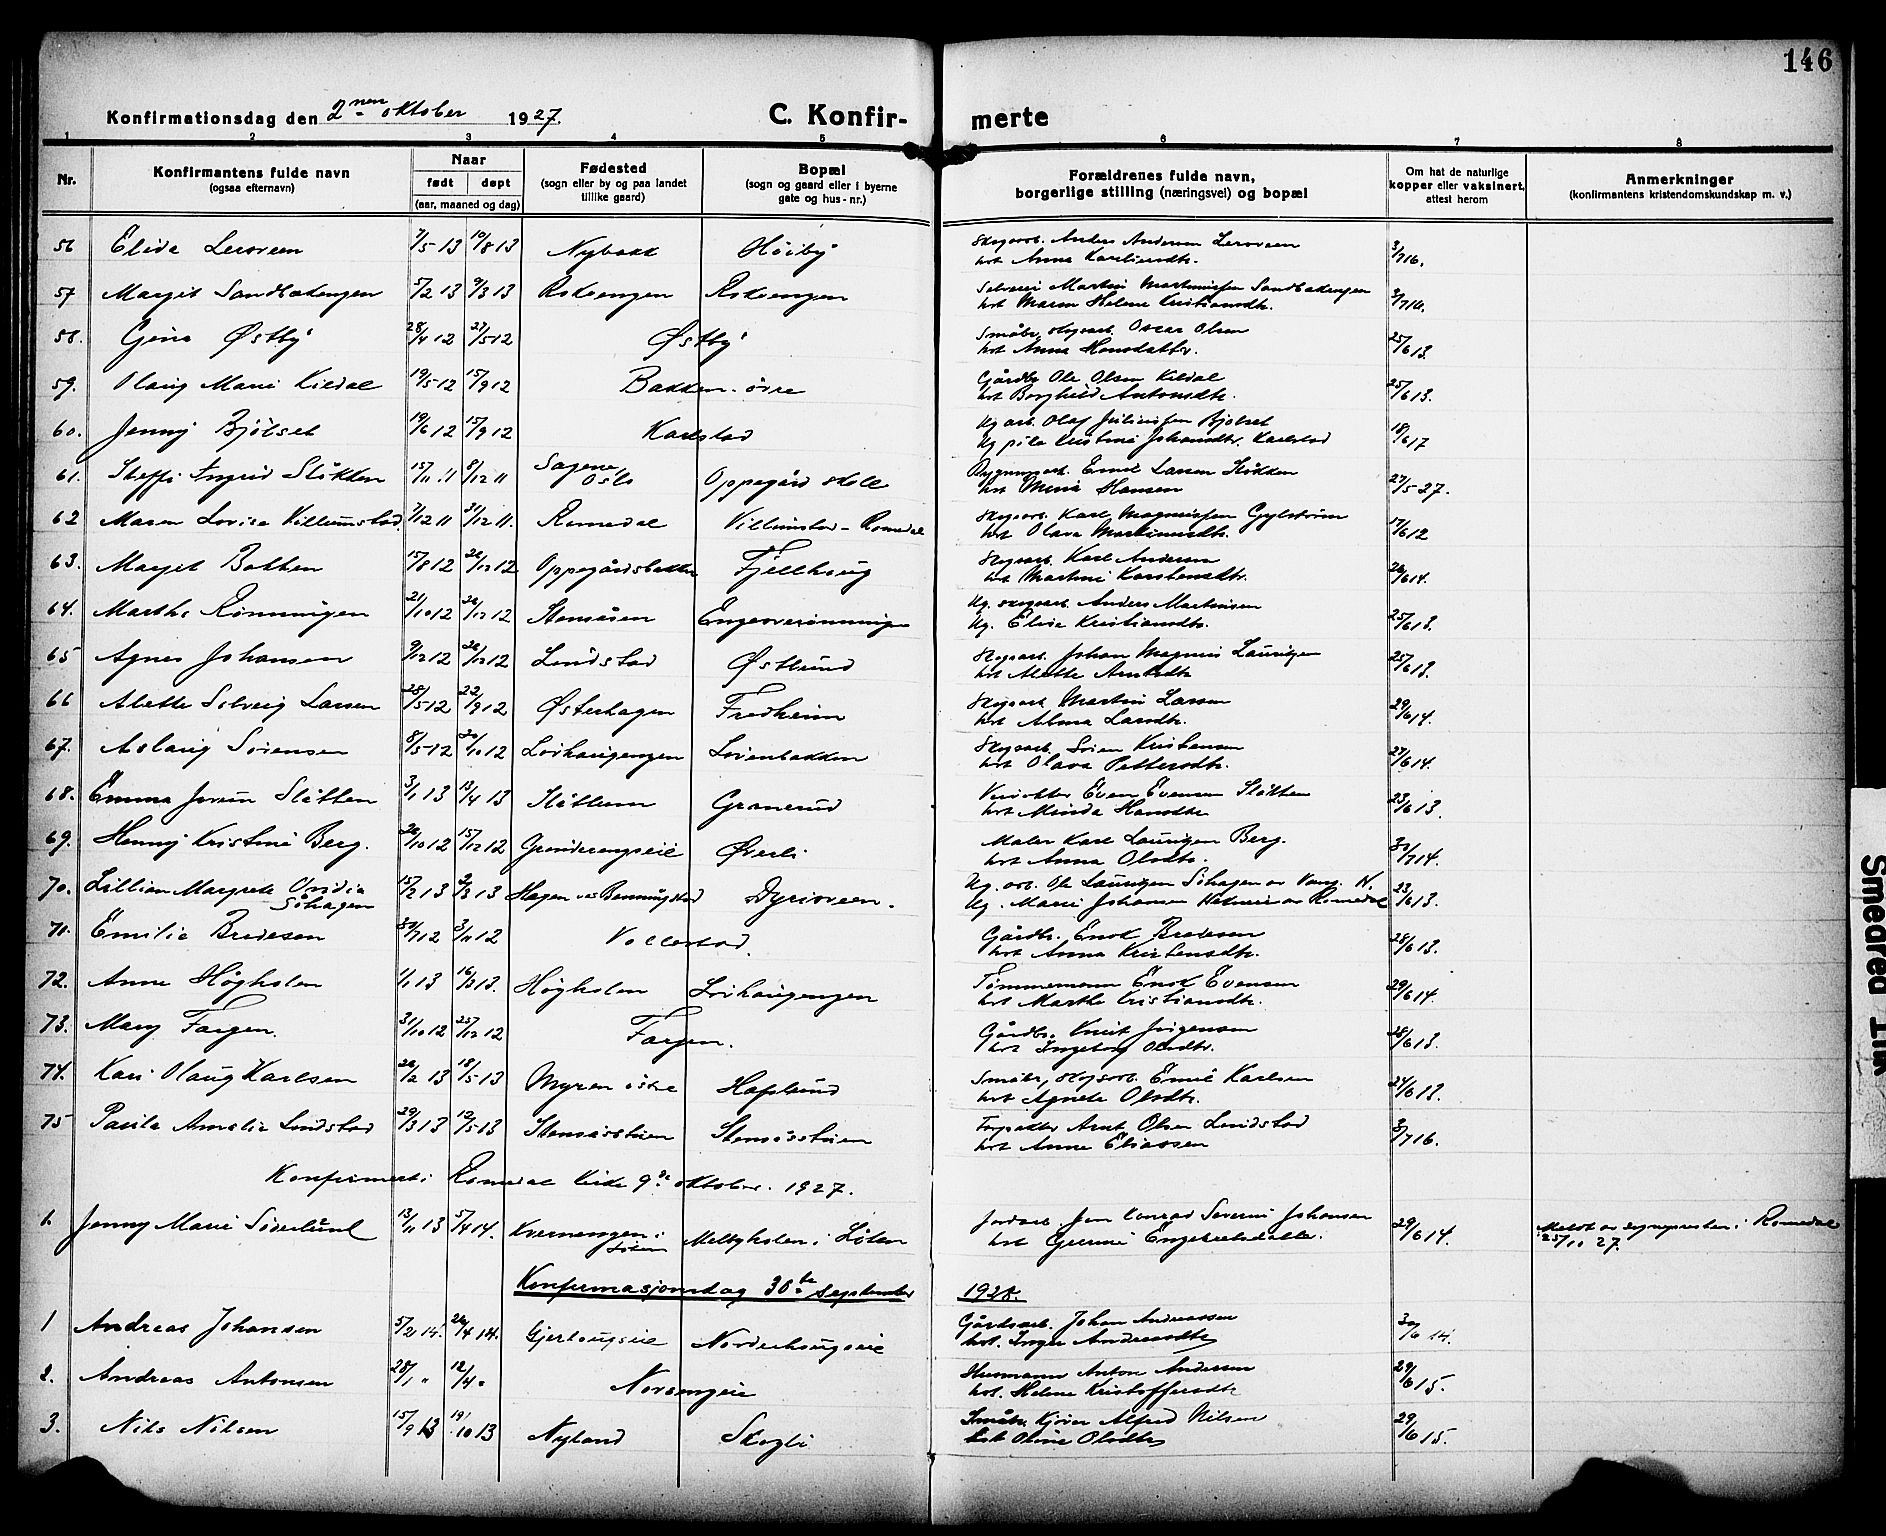 146
Konfirmationsdag den 2nen oktober 1927.
C. Konfirmerte
1 2 3 4 5 6 7 8
Nr. Konfirmantens fulde navn (ogsaa efternavn) Naar født døpt (aar, maaned og dag) Fødested (sogn eller by og paa landet tillike gaard) Bopæl (sogn og gaard eller i byerne gate og hus-nr.) Forældrenes fulde navn, borgerlige stilling (næringsvei) og bopæl Om hat de naturlige kopper eller vaksinert, attest herom Anmerkninger (konfirmantens kristendomskundskap m. v.)
56 Elida 7/5 13 10/8 13 Nybakk Høiby Skogarb. Anders Andersen hst Anna Karlsendtr. 3/7 16.
57 Margit Sandbakengen 5/2 13 9/3 13 Rokoengen Rokoengen Martin Martinussen Sandbakengen hst Maren Helene Kristiansdtr. 3/7 16.
58. Gina Østby 28/4 12 27/5 12 Østby Småbr. skogsarb. Oscar Olsen hst Anna Hansdatter. 25/6 13.
59. Olaug Marie Kildal 19/5 12 15/9 12 Bakken øvre Gårdbr Ole Olsen Kildal hst Borghild Antonsdtr. 25/6 13.
60. Jenny Bjølset 19/6 12 15/9 12 Karlstad Ug arb. Olaf Juliussen Bjølset Ug pike Kristine Johansdtr. Karlstad 18/6 17
61. Steffi Ingrid Slåtten 15/11 11 8/12 11 Sagene, Oslo Oppegård skole Bygningsarb. Emil Larsen hst Mina Hansen 27/5 27.
62 Maren Lovise Villumstad 7/12 11 31/12 11. Romedal Villumstad - Romedal Skogsarb. Karl Magnussen Gylstrøm hst Olava Martinusdtr. 17/6 12
63. Margit Bakken 15/8 12 26/12 12 Oppegårdsbakken Fjellhaug Skogsarb. Karl Andersen hst Martine Karstensdtr. 26/6 14.
64. Marthe Rønningen 21/10 12 26/12 12 Stensåsen Engeoverønningen Ug. skogsarb. Anders Martinsen Ug. Elise Kristiansdtr. 25/6 13.
65 Agnes Johansen 9/12 12 26/12 12 Lindstad Østlund Skogsarb. Johan Magnus Lauritzen hst Alette Arntsdtr 25/6 13.
66 Alette Solveig Larsen 28/5 12 22/9 12 Østerhagen Fredheim Skogsarb. Martin Larsen hst Alma Larsdtr. 29/6 14.
67. Aslaug Sørensen 8/5 12 20/10 12 Lovhaugengen Lovenbakken Skogsarb. Søren Kristensen hst Olava Pettersdtr. 27/6 14.
68. Emma Jorun Slåtten 3/1 13 13/4 13 Slåttum Granerud Even Evensen Slåtten hst Minda Hansdtr 23/6 13.
69. Henny Kristine Berg. 26/10 12 15/12 12 Grønderengseie Øverli Maler Karl Lauritzen Berg. hst Anna Olsdtr. 30/7 14.
70. Lillian Margrete Ovidia Søhagen 15/2 13 2/3 13 Hagen Dyrioveen. Ug. arb. Ole Lauritzen Søhagen av Vang. H. Ug. Marie Johansen av Romedal 23/6 13.
71. Emilie Bredesen 30/7 12 3/11 12 Vollestad. Gårdbr. Enok Bredesen hst Anna Kristensdtr. 28/6 13.
72. Anne Høgholen 1/1 13 16/3 13. Høgholen Lovhaugengen Tømmermann Enok Evensen hst Marthe Kristiansdtr. 29/6 14.
73. Mary Fargen. 31/10 12 25/12 12 Fargen. Gårdbr. Knut Jørgensen hst Ingeborg Olsdtr. 28/6 13.
74. Kari Olaug Karlsen 26/2 13 18/5 13 Myren østre Haslund Småbr, skogsarb. Emil Karlsen hst Agnete Olsdtr. 24/6 13.
75 Paula Amalie Lindstad 29/3 13 12/5 13 Stensåsstuen Stensåsstuen Forpakter Arnt Olsen Lindstad hst Anne Eliassen 3/7 16.
Konfirmert i Romedal kirke 9de oktober 1927.
1. Jenny Marie Søderlund 13/11 13 5/4 14. Kvernengen i Løten Meltyholen i Løten Jordarb. Jon Konrad Severin Johansen hst Gurine Engebretsdatter. 29/6 14. Meldt av sognepresten i Romedal 25/10 27.
Konfirmasjonsdag 30te september 1928.
1 Andreas Johansen 5/2 14. 26/4 14. Gjerlaugseie Norderhougseie Gårdsarb. Johan Andreassen hst. Inger Andreasdtr 30/6 14.
2. Andreas Antonsen 28/1 " 12/4 " Norsengeie Husmann Anton Andersen hst. Helene Kristoffersdtr 29/6 15.
3. Nils Nilsen 15/9 13 19/10 13 Nyland Skogli Småbr. Kjører Alfred Nilsen hst Oline Olsdtr 29/6 15.
Smeared Ink